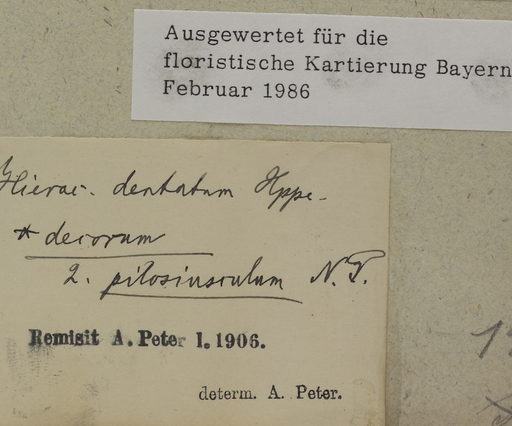 Ausgewertet für die
floristische Kartierung Bayern
Februar 1986
Hierac. dentatum Hppe.
* decorum
2. pilosiusculum N. P.
Remisit A. Peter 1. 1906.
determ. A. Peter.